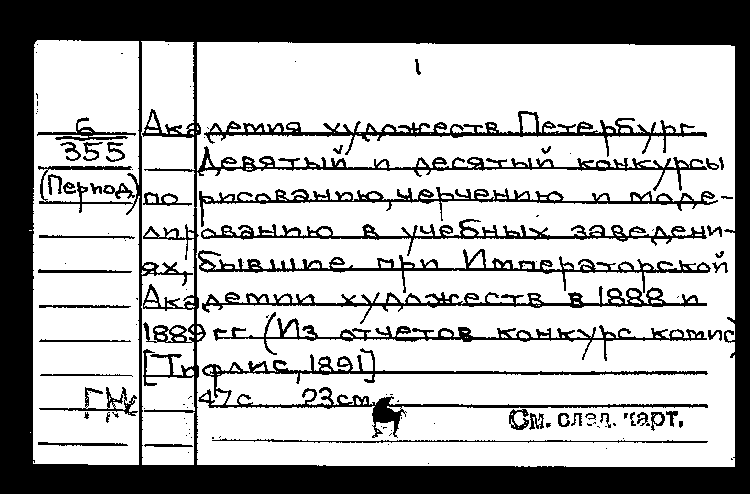 1
6
355
(Период)
Академия художеств Петербург
Девятый и десятый конкурсы
по рисованию, черчению и моде-
лированию в учебных заведени-
ях, бывшие при Императорской
Академии художеств в 1888 и
1889 гг. (Из отчетов конкурс. комис
[Тифлис, 1891]
47 с 23 см
См. след. карт.